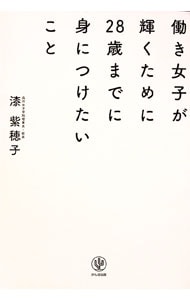 働き女子が
輝くために
28歳までに
身につけたい
こと
漆 紫穂子
かんき出版